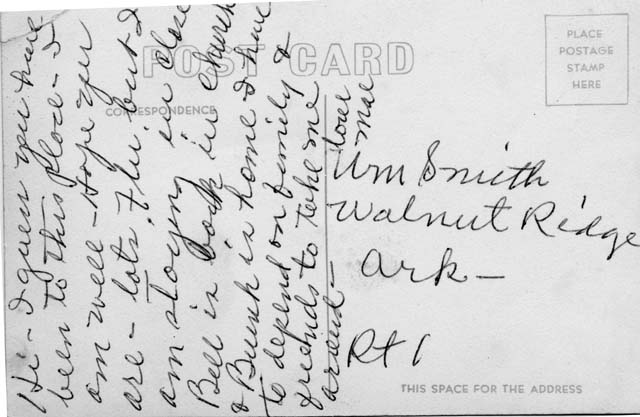 POST CARD
CORRESPONDENCE
PLACE
POSTAGE
STAMP
HERE
Hi - I guess you have
been to this place - I
am well - Hope you
are - lots flu, but I
am staying in close
Bell is back in church
& Buush is home I have
to depend on family &
friends to take me
around -
love
Mae
Wm Smith
Walnut Ridge
Ark -
Rt 1
THIS SPACE FOR THE ADDRESS